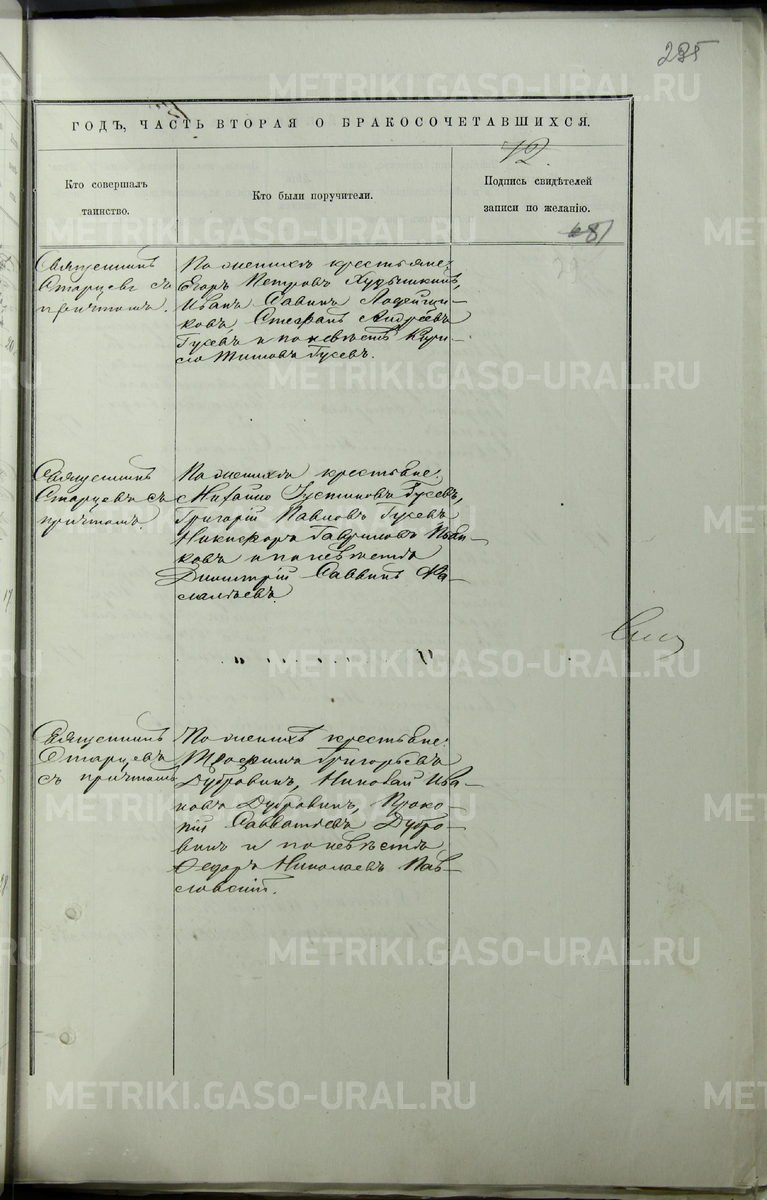 235
METRIKI.GASO-URAL.RU
ГОДЪ, ЧАСТЬ ВТОРАЯ О БРАКОСОЧЕТАВШИХСЯ.
12.
Кто совершалъ
таинство.
Кто были поручители.
Подпись свидѣтелей
записи по желанію.
Священникъ
Старцевъ съ
причтомъ.
По женихѣ крестьяне:
Егоръ Петровъ
Иванъ Савинъ Ладейщи-
ковъ, Стефанъ Андреевъ
Гусевъ и по невѣстѣ Кири-
ло Титовъ Гусевъ.
Священникъ
Старцевъ съ
причтомъ.
По женихѣ крестьяне:
Михайло Устиновъ Гусевъ,
Григорій Павловъ Гусевъ
Никифоръ Гавриловъ
ковъ и по невѣстѣ
Димитрій Саввинъ
Священникъ
Старцевъ
съ причтомъ
По женихѣ крестьяне:
Трофимъ Григорьевъ
Дубровинъ, Николай Ива-
новъ Дубровинъ, Проко-
пій Савватѣевъ Дубро-
винъ и по невѣстѣ
Ѳедоръ Николаевъ Пав-
ловскій.
METRIKI.GASO-URAL.RU